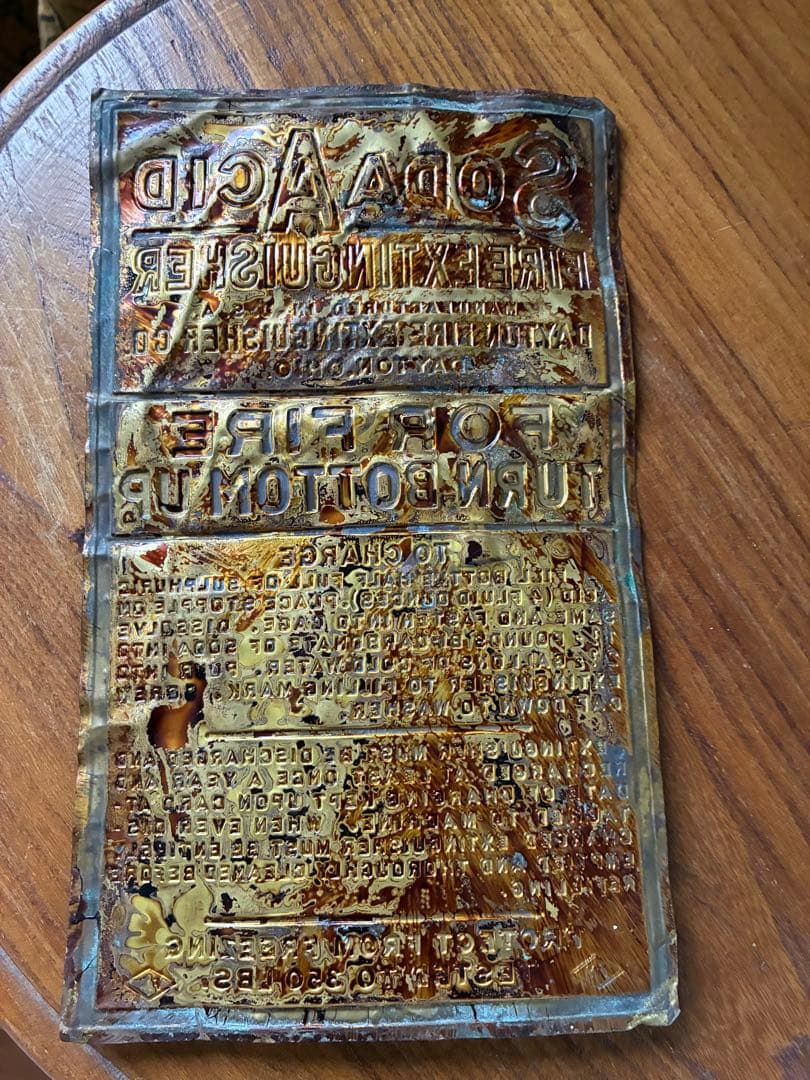 SODA ACID
FIRE EXTINGUISHER
MANUFACTURED IN U.S.A.
DAYTON FIRE EXTINGUISHER CO.
DAYTON, OHIO.
FOR FIRE
TURN BOTTOM UP
TO CHARGE
FILL BOTTLE HALF FULL OF SULPHURIC
ACID (4 FLUID OUNCES). PLACE STOPPLE ON
SAME AND FASTEN INTO CAGE. DISSOLVE
POUNDS BICARBONATE OF SODA INTO
GALLONS OF COLD WATER. POUR INTO
EXTINGUISHER TO FILLING MARK. SCREW
CAP DOWN TO WASHER.
EXTINGUISHER MUST BE DISCHARGED AND
RECHARGED AT LEAST ONCE A YEAR AND
DATE OF CHARGING KEPT UPON CARD AT-
TACHED TO MACHINE. WHEN EVER DIS-
CHARGED EXTINGUISHER MUST BE ENTIRELY
EMPTIED AND THOROUGHLY CLEANED BEFORE
REFILLING
PROTECT FROM FREEZING
TESTED TO 350 LBS.